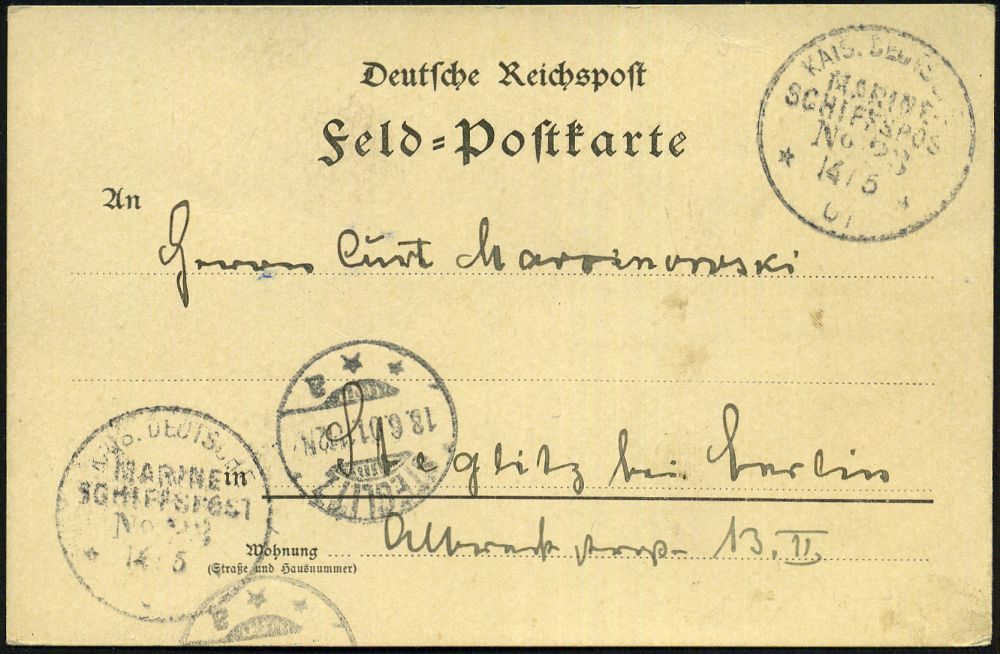 Deutsche Reichspost
Feld-Postkarte
KAIS. DEUTSCHE
MARINE
SCHIFFSPOST
No 23
14/5
01
An
Herrn Curt
a
18.6.01
STEGLITZ
Steglitz bei Berlin
in
KAIS. DEUTSCHE
MARINE
SCHIFFSPOST
14/5
Wohnung
(Straße und Hausnummer)
13. II.
a